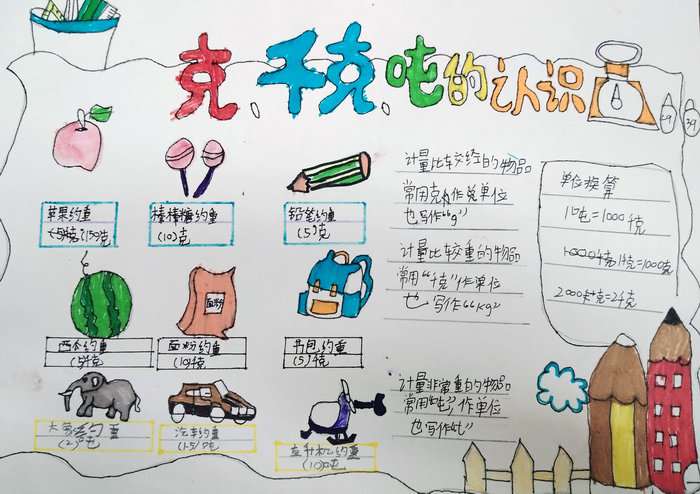 克、千克、吨的认识
苹果约重
(150)克
棒棒糖约重
(10)克
铅笔约重
(5)克
计量比较轻的物品
常用克作单位
也写作“g”
单位换算
1吨=1000千克
1千克=1000克
2000千克=2千克
面粉
西瓜约重
(5)千克
面粉约重
(10)千克
书包约重
(5)千克
计量比较重的物品
常用“千克”作单位
也写作“kg”
大象约重
(2)吨
汽车约重
(1.5)吨
直升机约重
(10)吨
计量非常重的物品
常用“吨”,作单位
也写作“t”